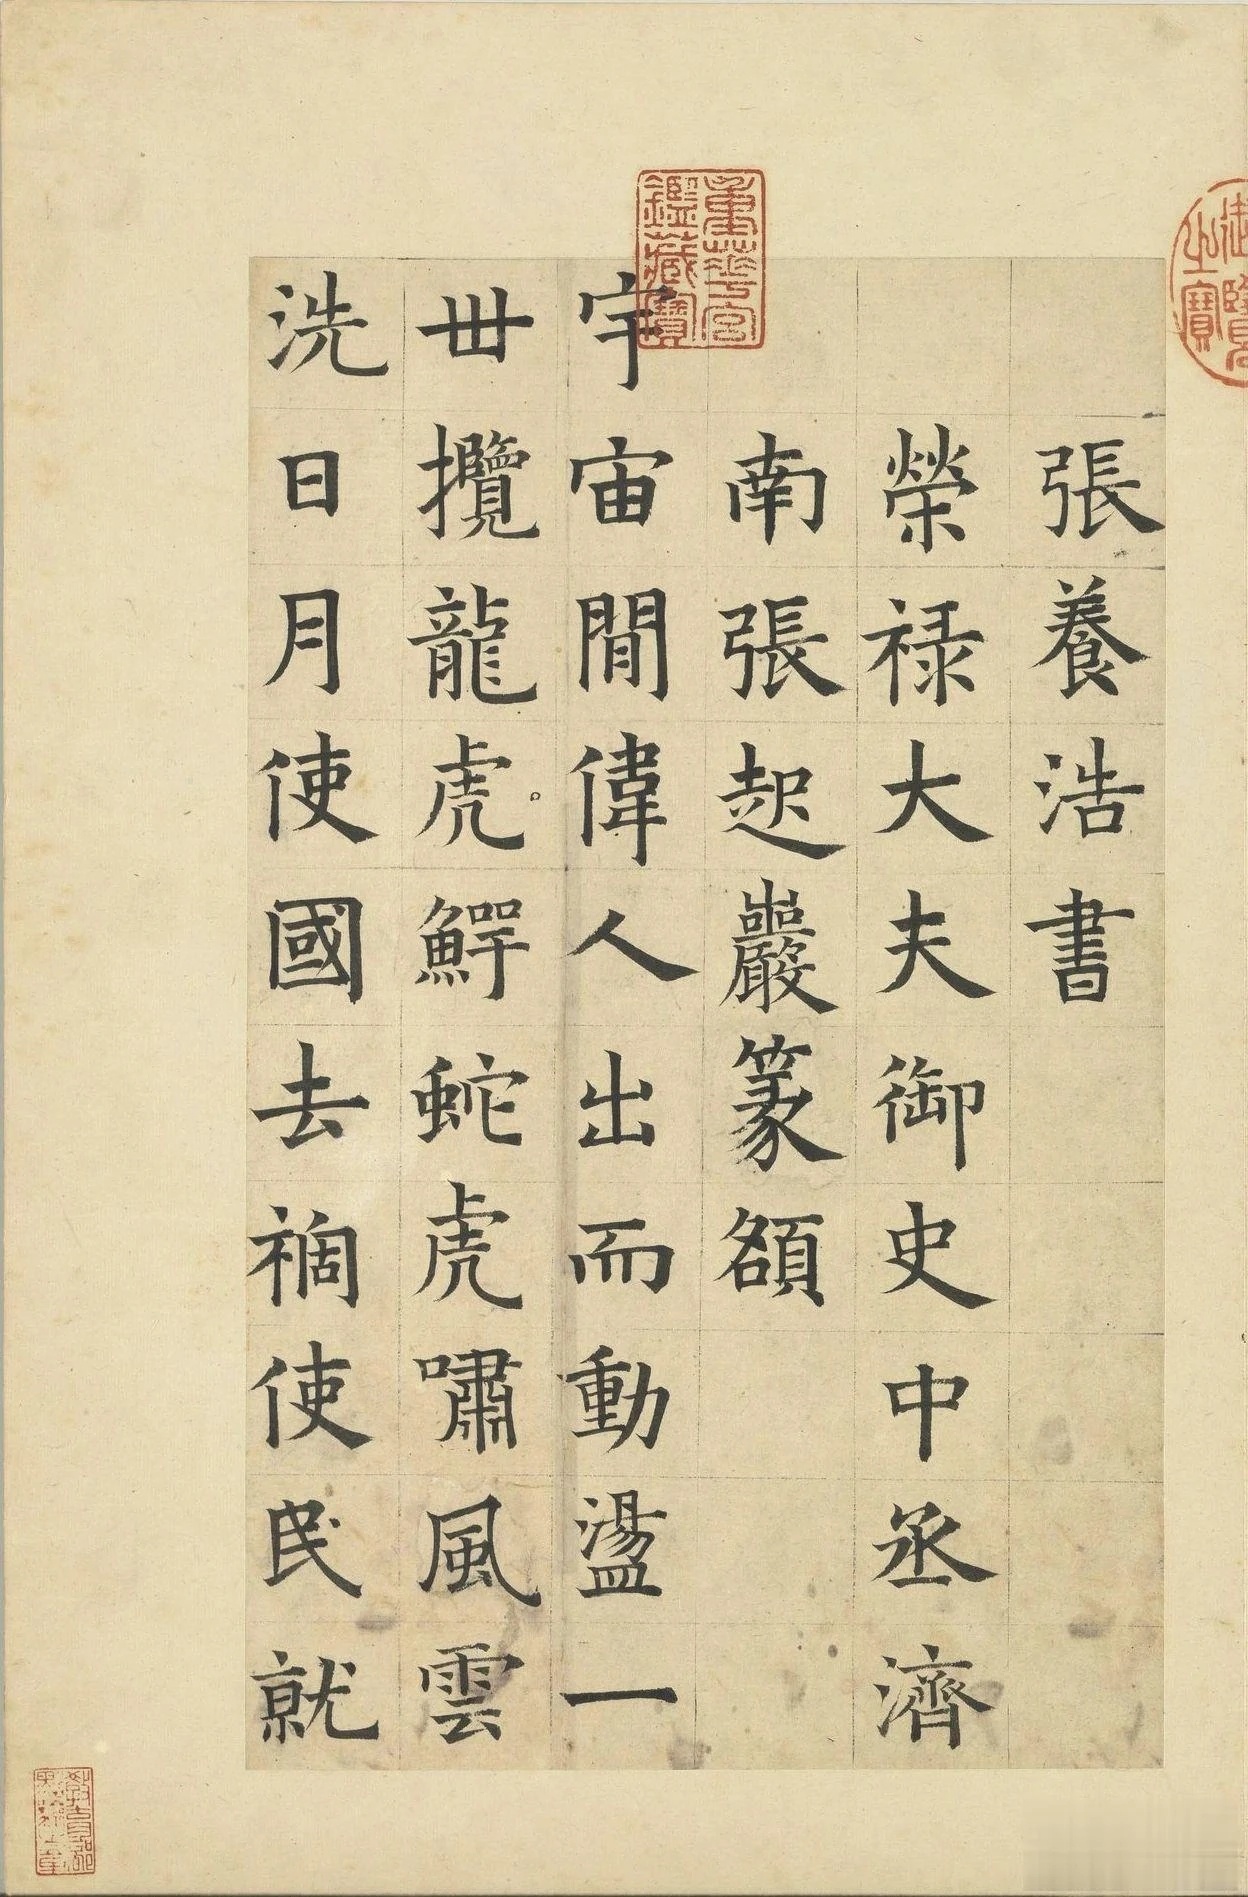 張養浩書
榮禄大夫御史中丞濟
南張起巖篆額
宇宙間偉人出而動盪一
丗攬龍虎鰐蛇虎嘯風雲
洗日月使國去禍使民就
重華宮鑑藏寶